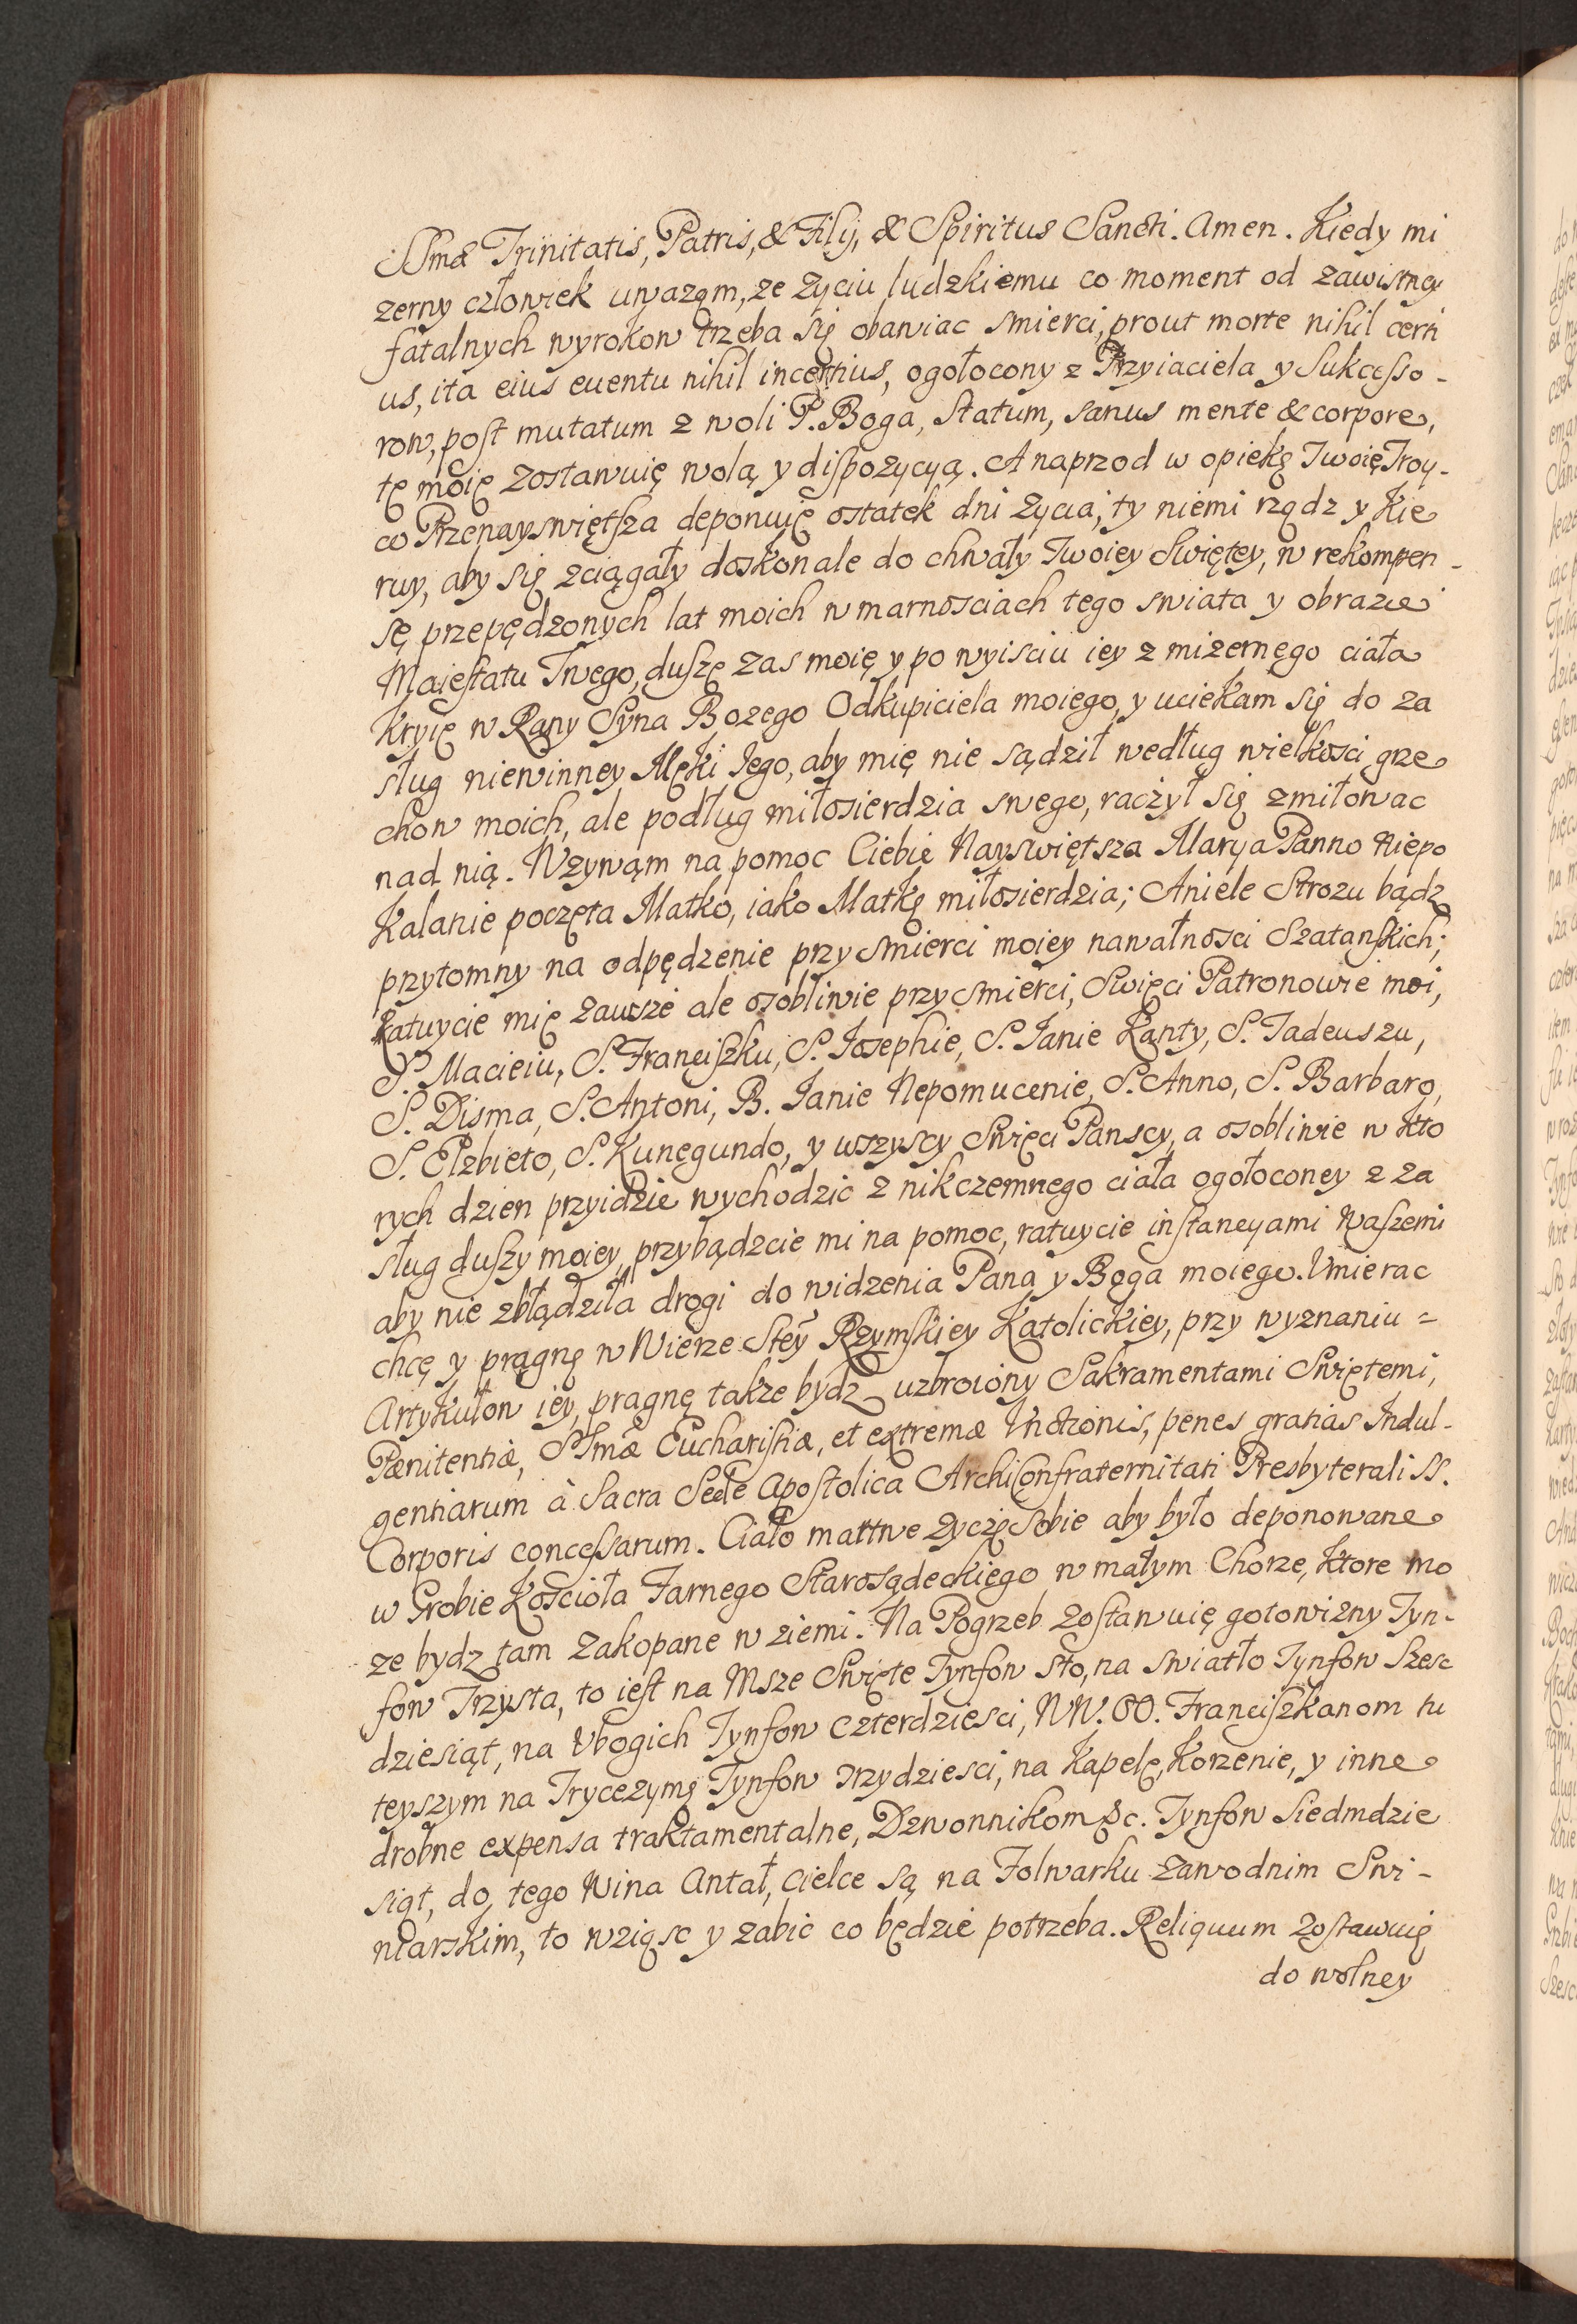 SSmæ Trinitatis, Patris, & Filij, & Spiritus Sancti. Amen. Kiedy mi
zerny człowiek uwaząm, ze zyciu ludzkiemu co moment od zawistnej
fatalnych wyrokow trzeba się obawiac smierci, prout morte nihil certi
us, ita eius euentu nihil incertius, ogołocony z Przyiaciela y Sukcesso-
row, post mutatum z woli P. Boga, Statum, sanus mente & corpore,
tę moię zostawuię wolą y dispozycyą. A naprzod w opiekę Twoię Troy-
co Przenayswiętsza deponuię ostatek dni zycia, ty niemi rządz y Kie
ruy, aby się zciągały doskonale do chwały Twoiey Swiętey, w rekompen-
sę przepędzonych lat moich w marnosciach tego swiata y obrazie
Maiestatu Twego, duszę zas moię y po wyisciu iey z mizernego ciała
Kryię w Rany Syna Bozego Odkupiciela moiego, y uciekam się do za
sług niewinney Męki Iego, aby mię nie sądził według wielkosci grze
chow moich, ale podług miłosierdzia swego, raczył się zmiłowac
nad nią. Wzywąm na pomoc Ciebie Nayswiętsza Marya Panno Niepo
Kalanie poczęta Matko, iako Matkę miłosierdzia; Aniele Strozu bądz
przytomny na odpędzenie przy smierci moiey nawałnosci Szatanskich;
Ratuycie mię zawsze ale osobliwie przy smierci, Swięci Patronowie moi,
S. Macieiu, S. Franciszku, S. Iosephie, S. Ianie Kanty, S. Tadeuszu,
S. Disma, S. Antoni, B. Ianie Nepomucenie, S. Anno, S. Barbaro,
S. Elzbieto, S. Kunegundo, y wszyscy Swięci Panscy, a osobliwie w Kto
rych dzien przyidzie wychodzic z nikczemnego ciała ogołoconey z za
sług duszy moiey, przybądzcie mi na pomoc, ratuycie instancyami Waszemi
aby nie zbłądziła drogi do widzenia Pana y Boga moiego. Umierac
chcę y pragnę w Wierze Stey Rzymskiey Katolickiey, przy wyznaniu =
Artykułow iey, pragnę takze bydz uzbroiony Sakramentami Swiętemi,
Pænitentiæ, SSmæ Eucharistiæ, et extremæ Unctionis, penes gratias Indul-
gentiarum à Sacra Sede Apostolica Archiconfraternitati Presbyterali SS.
Corporis concessarum. Ciało martwe zyczę sobie aby było deponowane
w Grobie Koscioła Farnego Starosądeckiego w małym Chorze, Ktore mo
ze bydz tam zakopane w ziemi. Na Pogrzeb zostawuię gotowizny Tyn-
fow Trzysta, to iest na Msze Swięte Tynfow sto, na swiatło Tynfow Szesc
dziesiąt, na Vbogich Tynfow czterdziesci, WW. OO. Franciszkanom tu
teyszym na Tryceyzmę Tynfow trzydziesci, na Kapelę, Korzenie, y inne
drobne expensa traktamentalne, Dzwonnikom &c. Tynfow Siedmdzie
siąt, do tego Wina Antał, cielce są na Folwarku zawodnim Swi-
niarskim, to wziąsc y zabic co będzie potrzeba. Reliquum zostawuię
do wolney